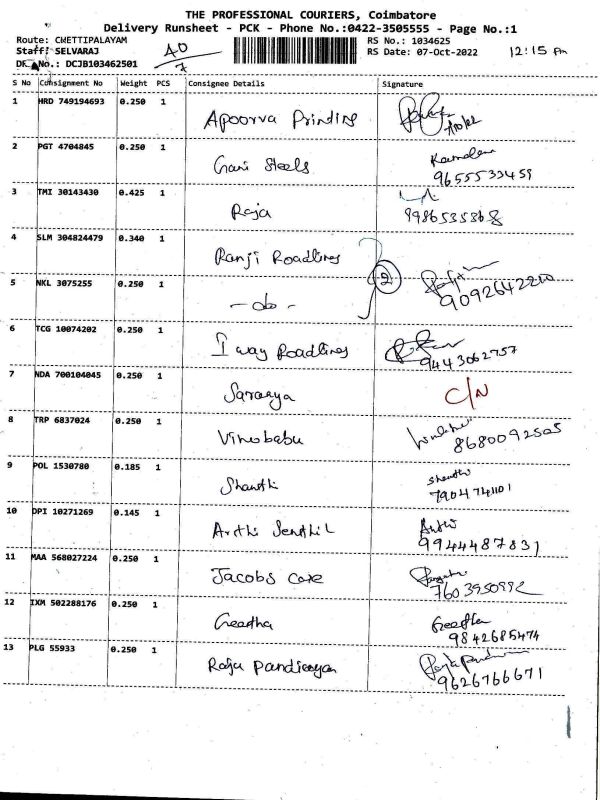 THE PROFESSIONAL COURIERS, Coimbatore
Delivery Runsheet - PCK - Phone No.:0422-3505555 - Page No.:1
Route: CHETTIPALAYAM
Staff: SELVARAJ
DR No.: DCJB103462501
40
7
RS No.: 1034625
RS Date: 07-Oct-2022
12:15 Pm
S No Consignment No Weight PCS Consignee Details Signature
1 HRD 749194693 0.250 1 Apoorva Printing
2 PGT 4704845 0.250 1 Gani Steels
9655533459
3 TMI 30143430 0.425 1 Raja
9986535368
4 SLM 304824479 0.340 1 Ranji Roadlines
2
5 NKL 3075255 0.250 1 - do -
9092642210
6 TCG 10074202 0.250 1 I way Roadlines
9443062757
7 NDA 700104045 0.250 1 Saranya C/N
8 TRP 6837024 0.250 1 Vinobabu
8680092505
9 POL 1530780 0.185 1 Shanthi Shanthi
7904741101
10 DPI 10271269 0.145 1 Arthi Senthil Arthi
9944487831
11 MAA 568027224 0.250 1 Jacobs Care
7603950992
12 IXM 502288176 0.250 1 Geetha Geetha
9842685474
13 PLG 55933 0.250 1 Raju Pandiayan
9626766671